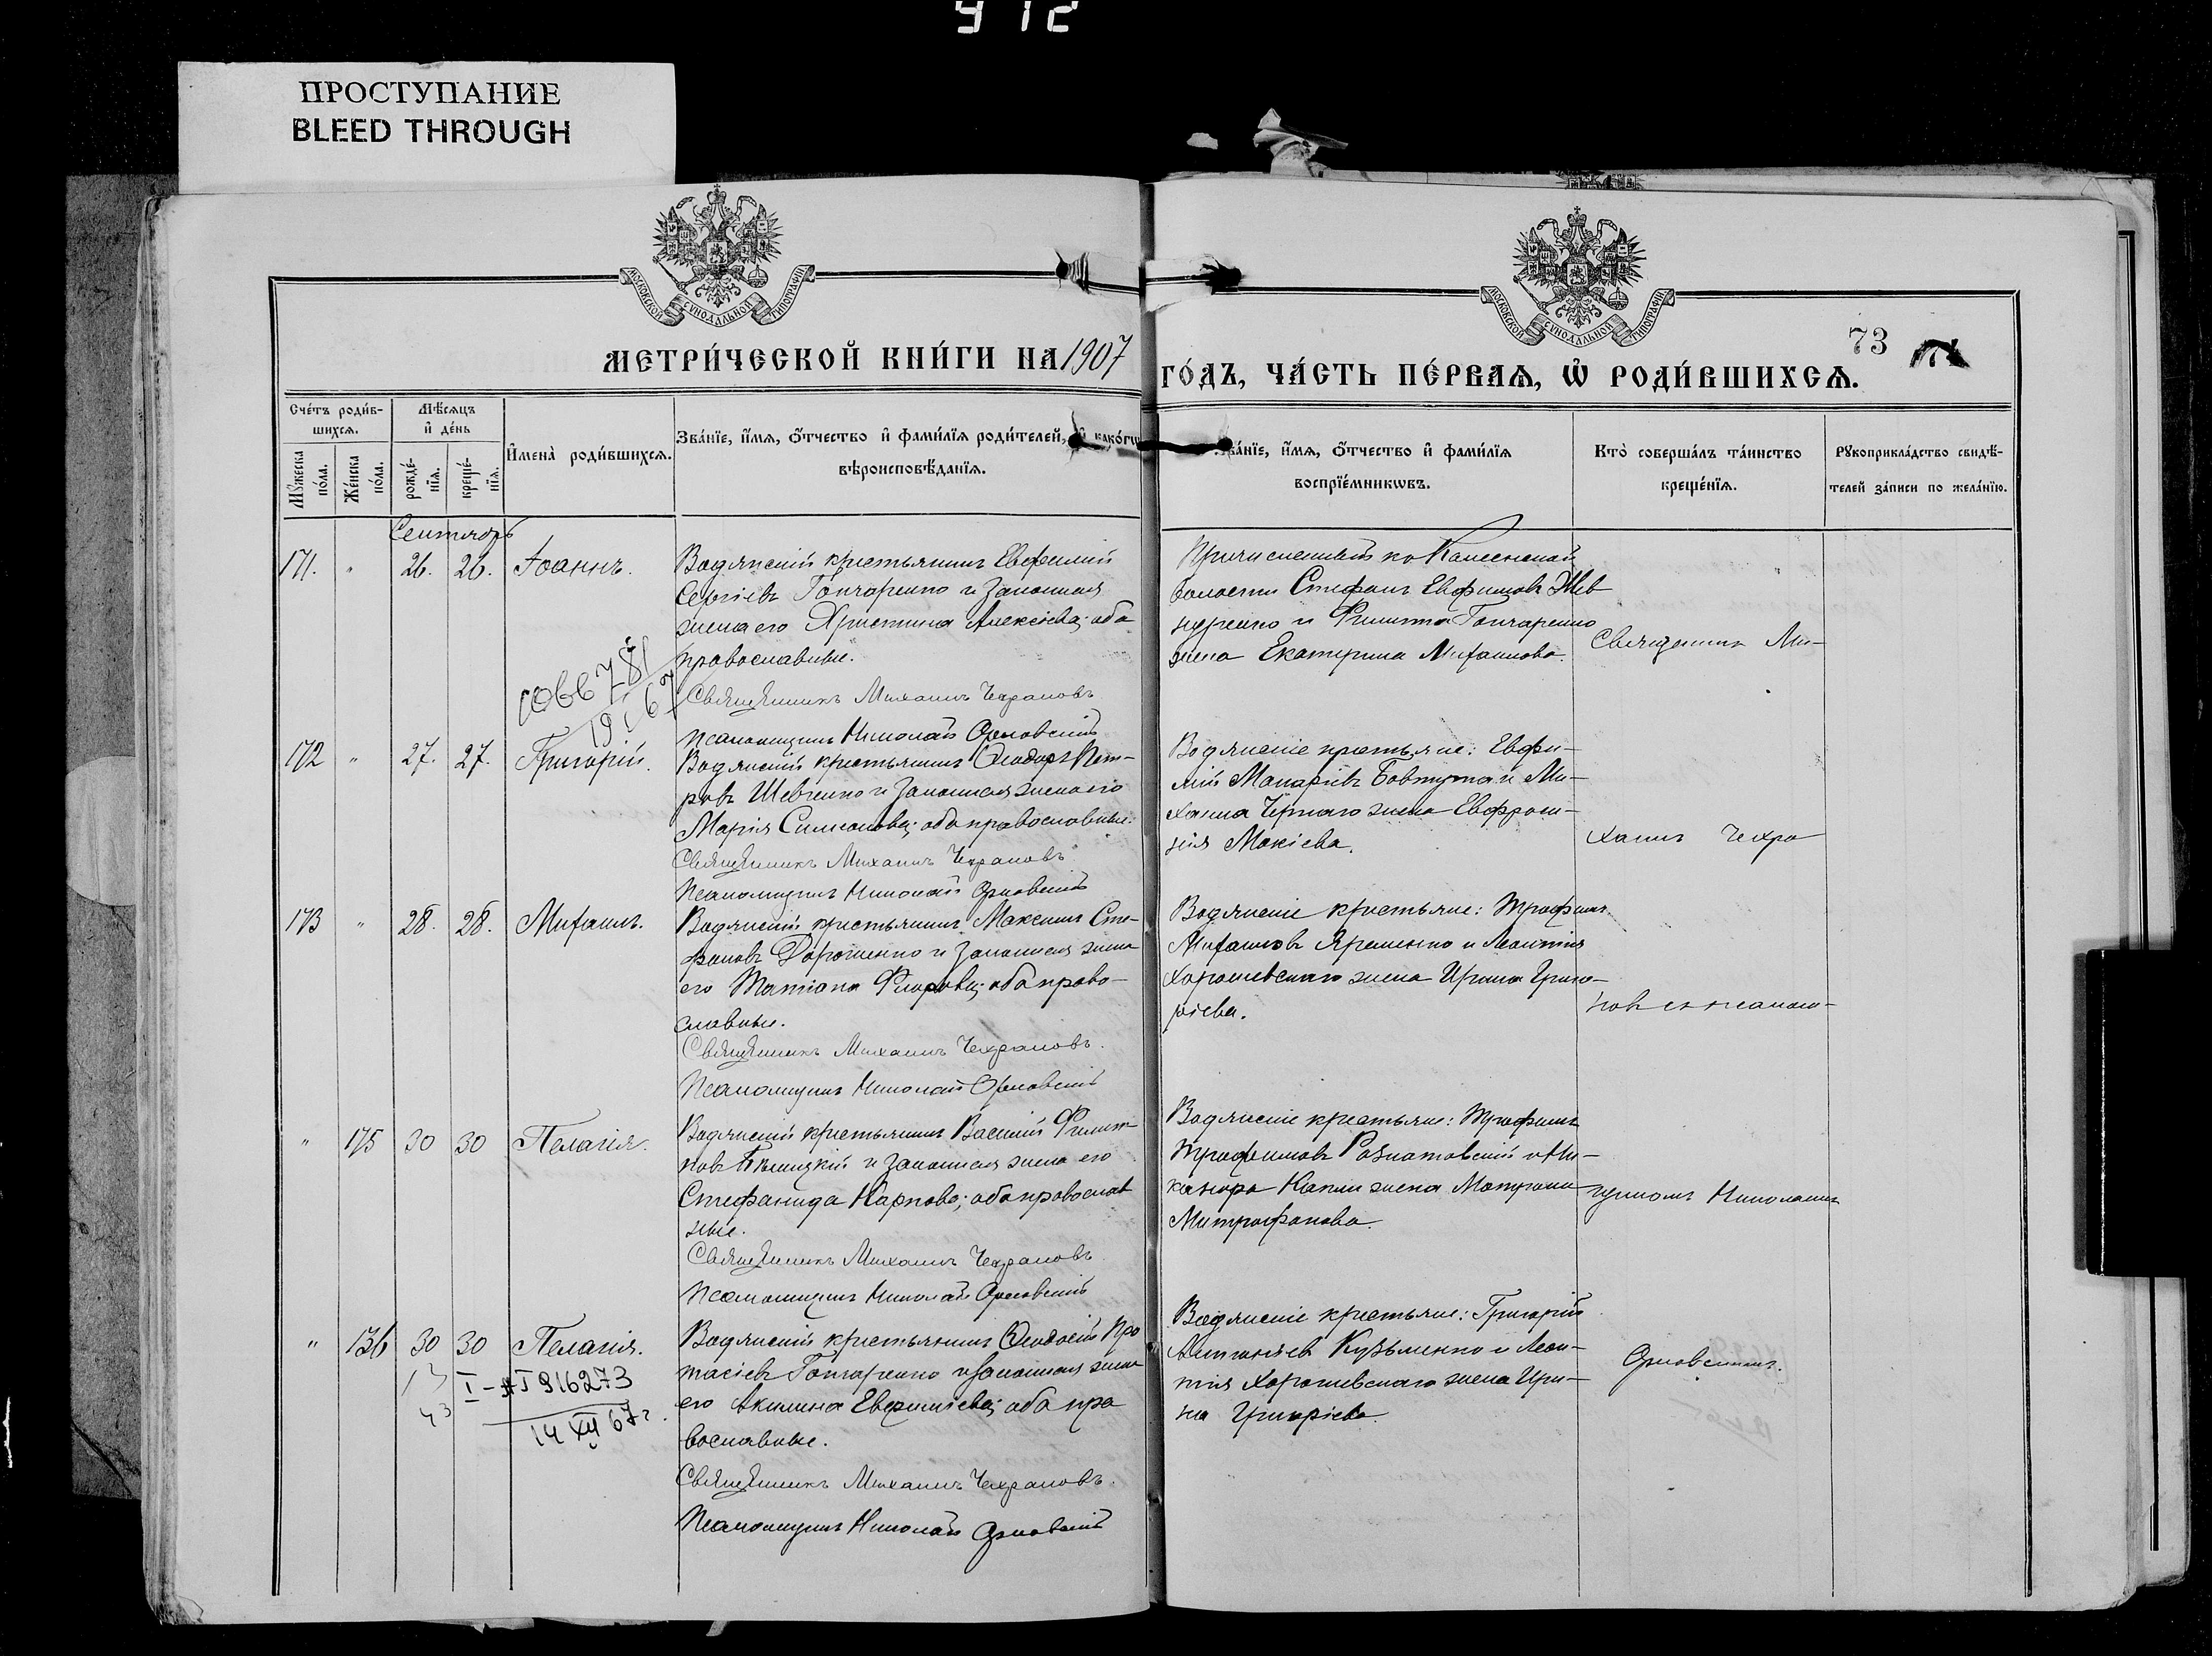 912
ПРОСТУПАНИЕ
BLEED THROUGH
МОСКОВСКОЙ СѴНОДАЛЬНОЙ ТИПОГРАФІИ
МОСКОВСКОЙ СѴНОДАЛЬНОЙ ТИПОГРАФІИ
МЕТРИ́ЧЕСКОЙ КНИ́ГИ НА 1907
ГО́ДЪ, ЧА́СТЬ ПЕ́РВАѦ, Ѡ҆ РОДИ́ВШИХСѦ.
73
Сче́тъ роди́в-
шихсѧ.
Мꙋжеска по́ла.
Же́нска по́ла.
Мѣ́сѧцъ
и҆ де́нь
рожде́-
нїѧ.
креще́-
нїѧ.
И҆мена̀ роди́вшихсѧ.
Зва́нїе, и҆́мѧ, ѻ҆́тчество и҆ фами́лїѧ роди́телей, и҆ како́гѡ
вѣроисповѣ́данїѧ.
Зва́нїе, и҆́мѧ, ѻ҆́тчество и҆ фами́лїѧ
воспрїе́мникѡвъ.
Кто̀ соверша́лъ та́инство
креще́нїѧ.
Рꙋкоприкла́дство свидѣ́-
телей за́писи по жела́нїю.
Сентябрь
171. " 26. 26. Іоаннъ.
Водянскій крестьянинъ Евфимій
Сергіевъ Гончаренко и законная
жена его Христина Алексіева; оба
православные.
Священникъ Михаилъ Чехрановъ
Псаломщикъ Николай Орловскій
Причисленный къ Каменской
волости Стефанъ Евфимовъ Шев
женa Екатерина Михаилова.
Священникъ Ми-
172 " 27. 27. Григорій.
Водянскій крестьянинъ Ѳеодоръ Пет-
ровъ Шевченко и законная жена его
Марія Симеонова; оба православные.
Священникъ Михаилъ Чехрановъ
Псаломщикъ Николай Орловскій
Водянскіе крестьяне: Евфи-
мій Макаріевъ Бовтута и Ми-
хаила Чернаго жена Евфроси-
нія Мокіева.
хаилъ Чехра
173 " 28. 28. Михаилъ.
Водянскій крестьянинъ Максимъ Сте-
фановъ Дорошенко и законная жена
его Татіана Флорова; оба право-
славные.
Священникъ Михаилъ Чехрановъ.
Псаломщикъ Николай Орловскій
Водянскіе крестьяне: Трофимъ
Михаиловъ Яременко и Леонтія
Хорошевскаго жена Ирина Григо-
ріева.
новъ съ псалом-
" 175 30 30 Пелагія.
Водянскій крестьянинъ Василій Филип-
повъ и законная жена его
Стефанида Карпова; оба православ
ные.
Священникъ Михаилъ Чехрановъ
Псаломщикъ Николай Орловскій
Водянскіе крестьяне: Трофимъ
Трофимовъ Розматовскій и Ни-
канора жена Матрона
Митрофанова.
щикомъ Николаемъ
" 136 30 30 Пелагія.
I- 916273
14 XII 67 г.
Водянскій крестьянинъ Ѳеодосій Про
тасіевъ Гончаренко и законная жена
его Акилина Евфиміева; оба пра
вославные.
Священникъ Михаилъ Чехрановъ.
Псаломщикъ Николай Орловскій
Водянскіе крестьяне: Григорій
Кузьменко и Леон-
тія Хорошевскаго жена Ири-
на Григоріева.
Орловскимъ.